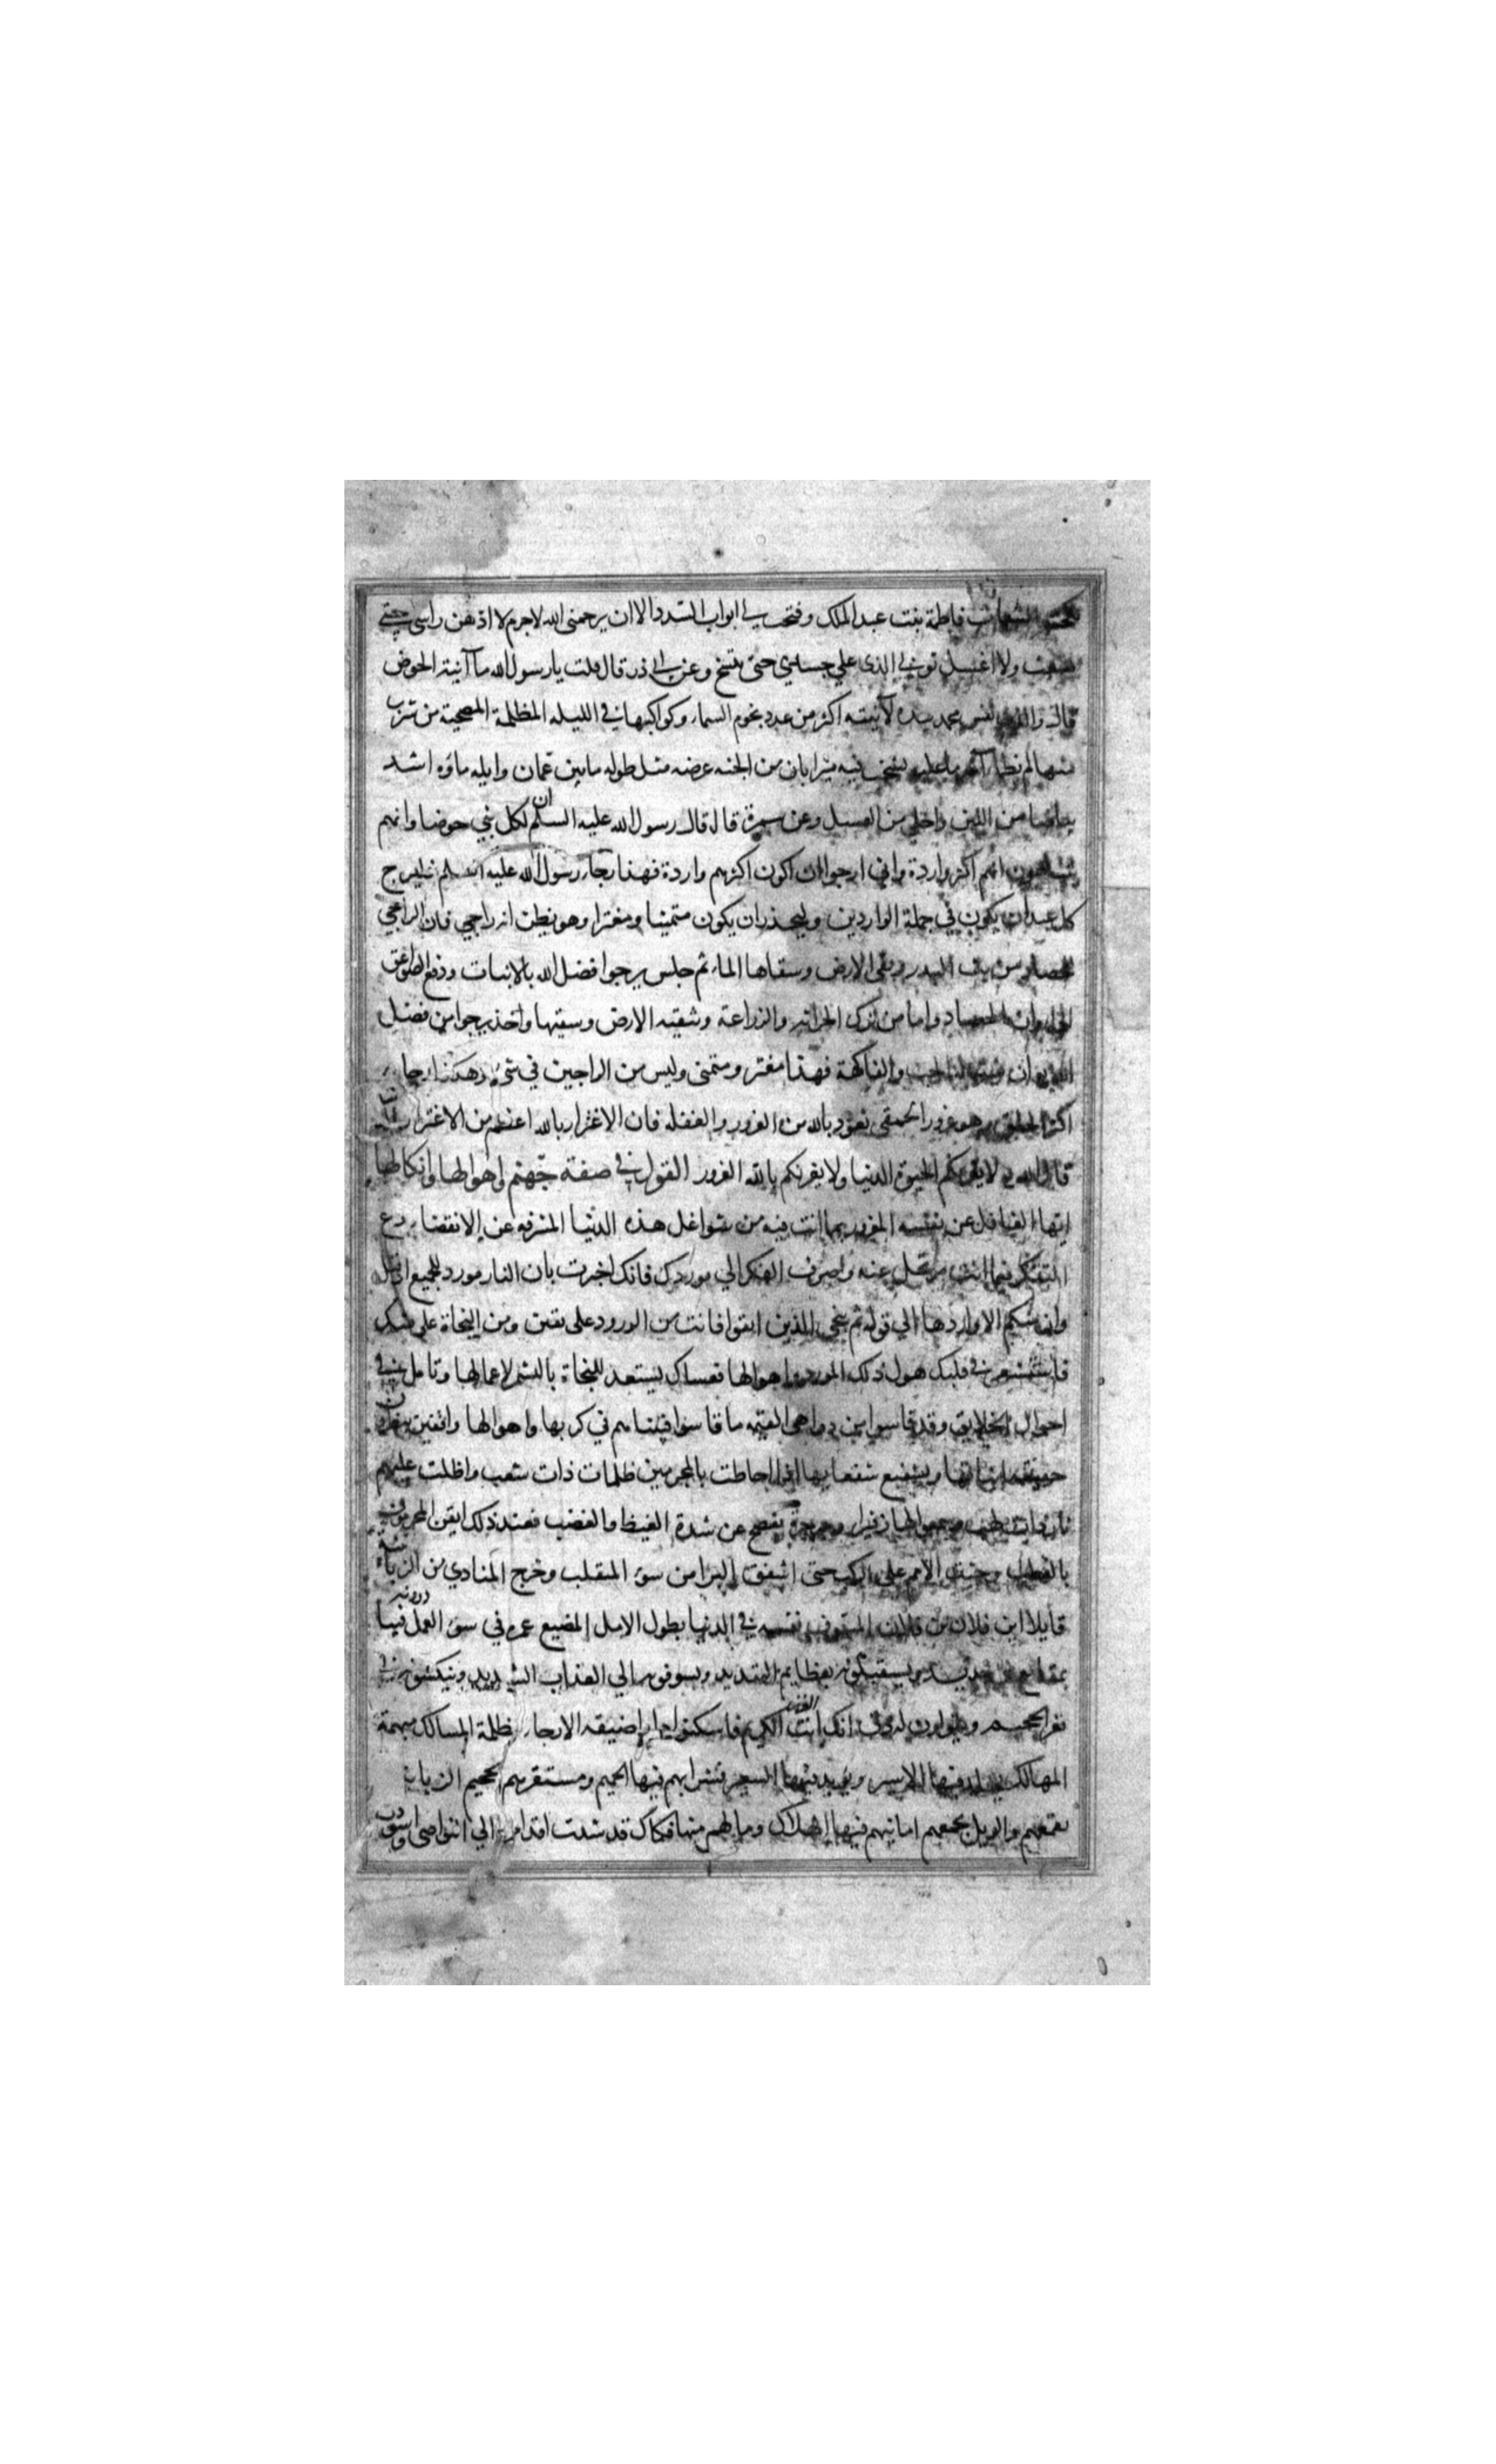 نكحت المتنعمات فاطمة بنت عبد الملك وفتحت لي ابواب السدد الا ان يرحمني الله لاجرم لا ادهن راسي حتي
يشعث ولا اغسل ثوبي الذي علي جسدي حتي يتسخ وعن ابي ذر قال قلت يا رسول الله ما آنية الحوض
قال والذي نفس محمد بيده لآنيته اكثر من عدد نجوم السماء وكواكبها في الليله المظلمة المصحية من شرب
منها لم يظما آخر ما عليه يشخب فيه ميزابان من الجنه عرضه مثل طوله مابين عمان وايله ماؤه اشد
بياضا من اللبن واحلي من العسل وعن سمرة قال قال رسول الله عليه السلم ان لكل نبي حوضا وانهم
يتباهون ايهم اكثر واردة واني ارجوا ان اكون اكثرهم واردة فهذا رجاء رسول الله عليه السلم فليرج
كل عبد ان يكون في جملة الواردين وليحذر ان يكون متمنيا ومغترا وهو يظن انه راجي فان الراجي
للحصاد من بث البذر ونقي الارض وسقاها الماء ثم جلس يرجوا فضل الله بالانبات ودفع الصواعق
الي اوان الحصاد واما من ترك الحراثه والزراعة وتنقيه الارض وسقيها واخذ يرجوا من فضل
الله ان ينبت له الحب والفاكهة فهذا مغتر ومتمني وليس من الراجين في شيء وهكذا رجاء
اكثر الخلق وهو غرور الحمقي نعوذ بالله من الغرور والغفله فان الاغترار بالله اعظم من الاغترار بالدنيا
قال الله ولا يغرنكم الحيوة الدنيا ولا يغرنكم بالله الغرور القول في صفة جهنم واهوالها وانكالها
ايها الغافل عن نفسه المغرور بما انت فيه من شواغل هذه الدنيا المشرفه عن الانقضاء دع
التفكر فيما انت مرتحل عنه واصرف الفكر الي موردك فانك اخبرت بان النار مورد للجميع اذ قال
وان منكم الا واردها الي قوله ثم ننجي الذين اتقوا فانت من الورود علي يقين ومن النجاة علي شك
فاستشعر في قلبك هول ذلك المورد واهوالها فعساك يستعد للنجاة بالتشمر لاعمالها وتامل في
احوال الخلايق وقد قاسوا من دواهي القيمه ما قاسوا فبينا هم في كربها واهوالها واقفين ينتظرون
حقيقه انبائها ويشفيع شفعايها اذا احاطت بالمجرمين ظلمات ذات شعب واظلت عليهم
نار ذات لهب وسمعوا لها زفيرا وجرجرة يفصح عن شدة الغيظ والغضب فعند ذلك ايقن المجرمون
بالعطب وجثت الامم علي الركب حتي اشفق البرا من سوء المنقلب وخرج المنادي من الزبانية
قايلا اين فلان بن فلان المسوف نفسه في الدنيا بطول الامل المضيع عمره في سوء العمل فيبادرونه
بمقامع من حديد ويستقبلونه بعظايم التهديد ويسوقونه الي العذاب الشديد وينكسونه في
قعر الجحيم ويقولون له ذق انك انت العزيز الكريم فاسكنوا دارا ضيقه الارجاء مظلمة المسالك مبهمة
المهالك يخلد فيها الاسير ويوبد فيها السعير فشرابهم فيها الحميم ومستقرهم الجحيم الزبانيه
تقمعهم والويل يجمعهم امانيهم فيها الهلاك وما لهم منها فكاك قد شدت اقدامهم الي النواصي واسودت